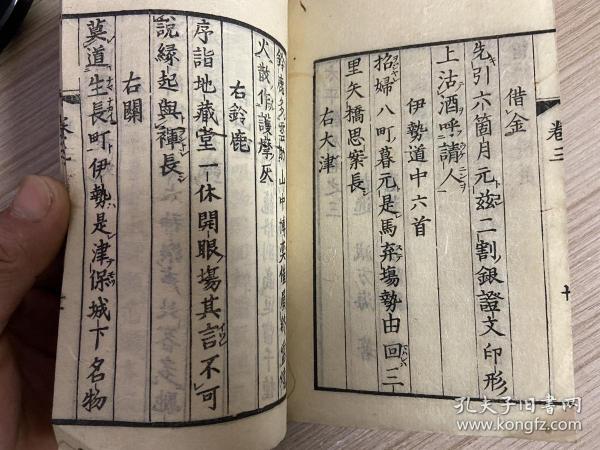 借金
先引六箇月元茲二割銀證文印形
上沽酒呼請人
伊勢道中六首
招婦八町暮元是馬棄塲勢由回三
里矢橋思案長
右大津
卷三
十
鈴鹿
山中
火鼓 護摩灰
右鈴鹿
序詣地藏堂一休開眼塲其言不可
說緣起與褌長
右關
莫道生長町伊勢是津保城下名物
孔夫子旧书网
www.kongfz.com